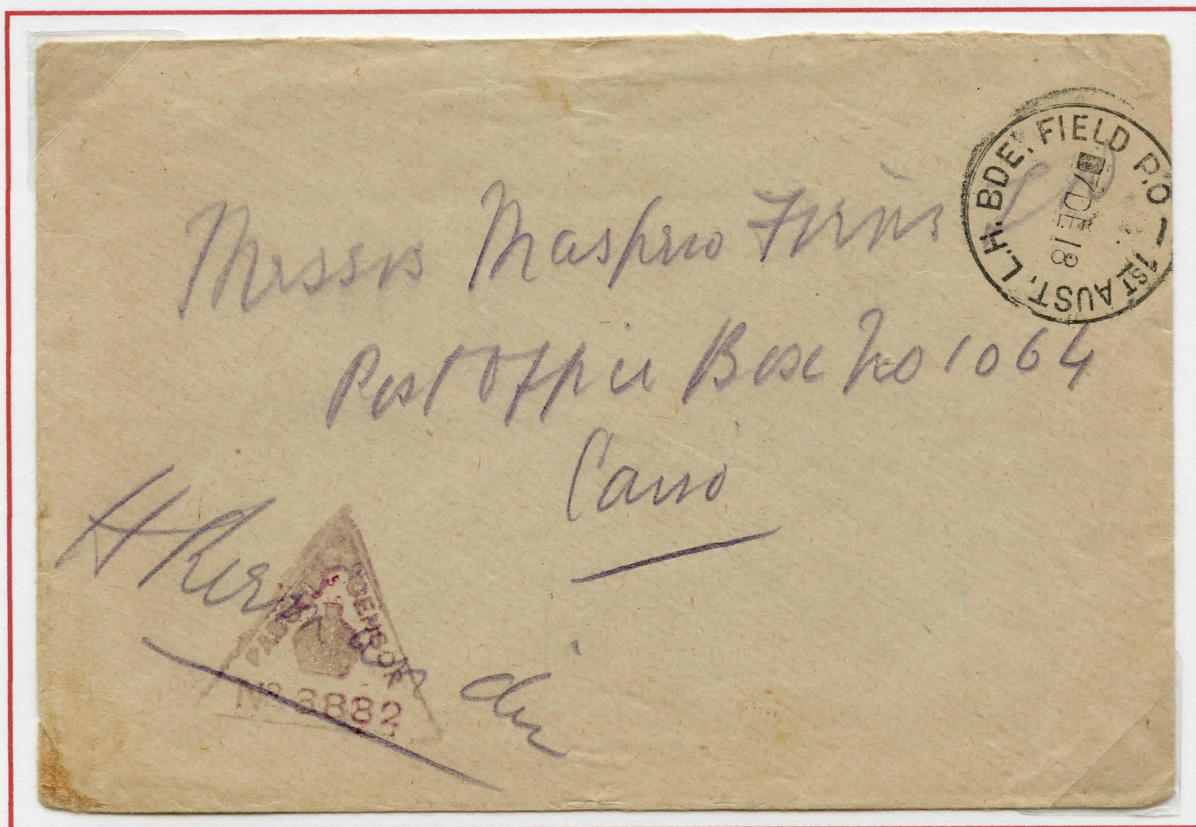 1ST AUST. L.H. BDE. FIELD P.O –
07 DE 18
Messrs Maspero Freres
Post Office Box No 1064
Cairo
PASSED BY CENSOR
No 3882